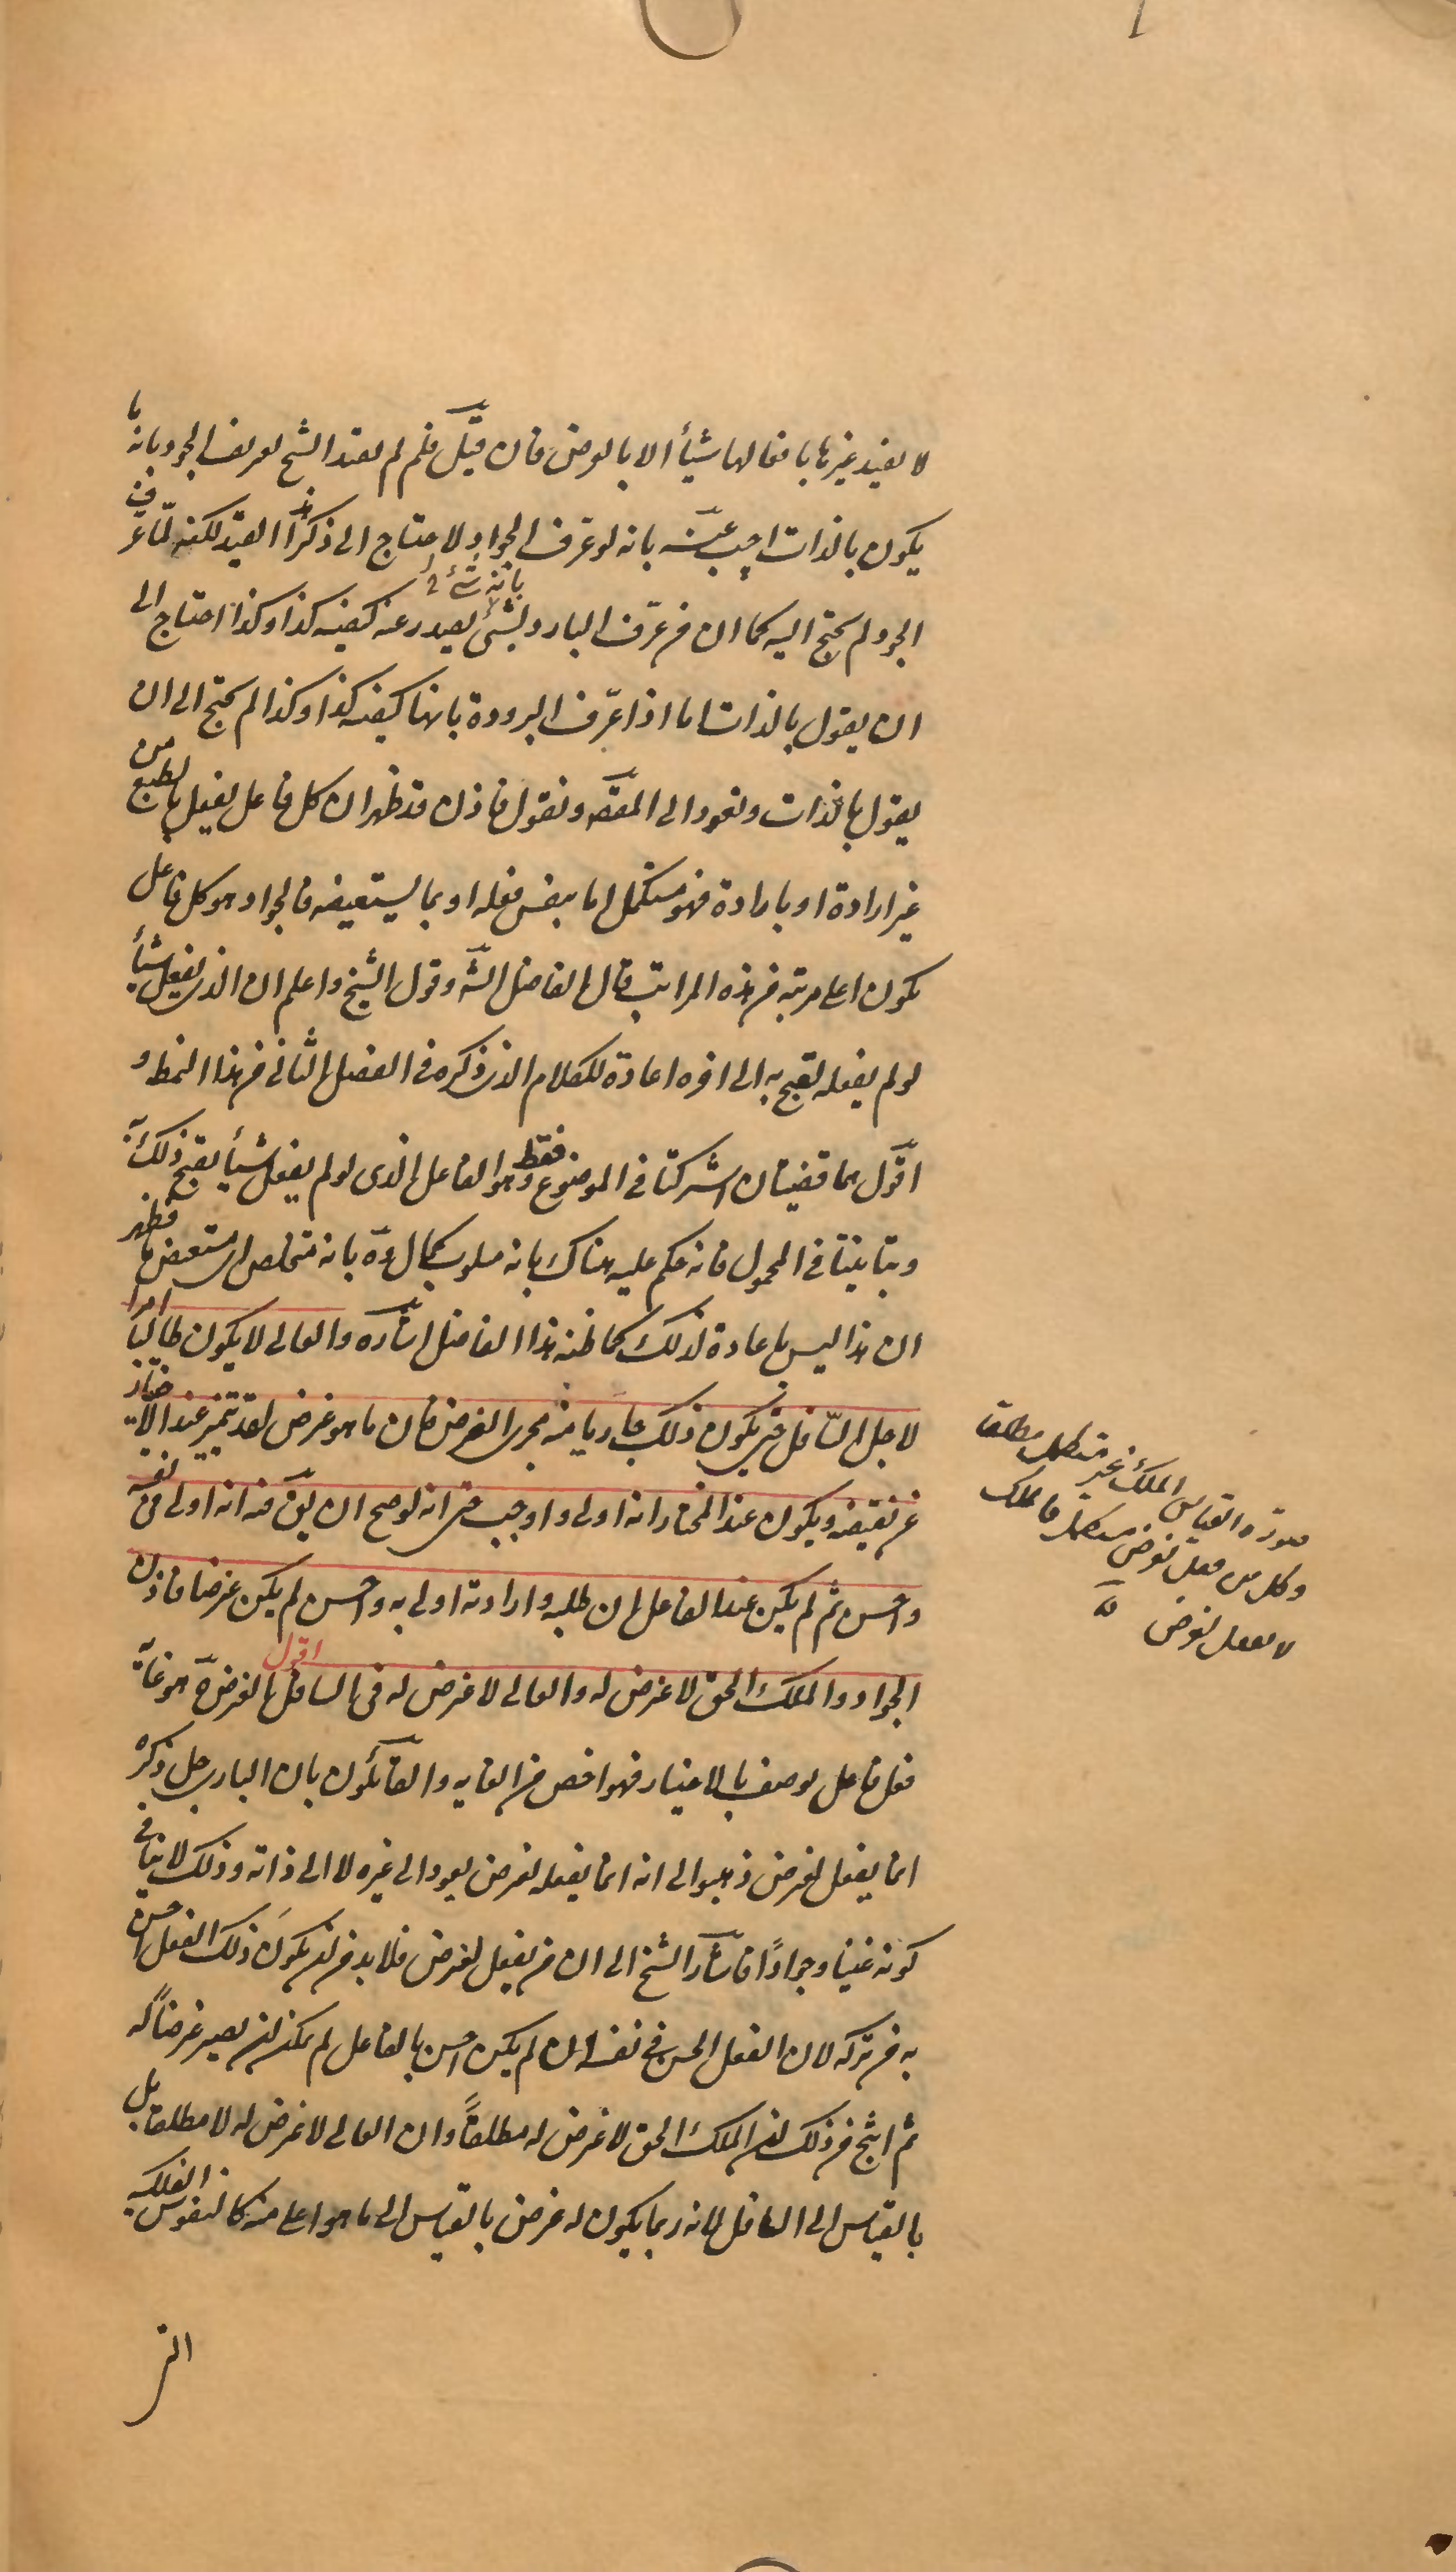 لا يفيد غيرها بافعالها شيأ الا بالعرض فان قيل فلم لم يقيد الشيخ تعريف الجود بانه ما
يكون بالذات اجيب عنه بانه لو عرف الجواد لاحتاج الى ذكر هذا القيد لكنه لما عرف
الجود لم يحتج اليه كما ان من عرف البارد بانه شئ يصدر عنه كيفيه كذا وكذا احتاج الى
ان يقول بالذات اما اذا عرّف البرودة بانها كيفيه كذا وكذا لم يحتج الى ان
يقول بالذات ونعود الى المقصه ونقول فاذن قد ظهر ان كل فاعل يفعل بالطبع من
غير ارادة او بارادة فهو مستكمل اما بنفس فعله او بما يستعيضه فالجواد هو كل فاعل
يكون اعلى مرتبه من هذه المراتب قال الفاضل الشه وقول الشيخ واعلم ان الذى يفعل شيأ
لو لم يفعله لقبح به الى اخره اعادة للكلام الذى ذكره فى الفصل الثانى من هذا النمط و
اقول هما قضيتان اشتركتا فى الموضوع فقط وهو الفاعل الذى لو لم يفعل شيأ يقبح ذلك به
وتباينتا فى المحمول فانه حكم عليه هناك بانه مسلوب كمال وهَ بانه متخلص او مستعيض فظهر
ان هذا ليس باعادة لذلك كما ظنه هذا الفاضل اشاره والعالى لا يكون طالبا امرا
لاجل السّافل حتى يكون ذلك جاريا منه مجرى الغرض فان ما هو غرض لقد يتميز عند الاختيار
من نقيضه ويكون عند المختار انه اولى واوجب حتى انه لو صح ان يقَ فيه انه اولى فى نفسه
واحسن ثم لم يكن عند الفاعل ان طلبه وارادته اولى به واحسن لم يكن غرضا فاذن
الجواد والملك الحق لا غرض له والعالى لا غرض له فى السافل اقول الغرض هو غاية
فعل فاعل يوصف بالاختيار فهو اخص من الغايه والقائلون بان البارى جل ذكره
انما يفعل لغرض ذهبوا الى انه انما يفعله لغرض يعود الى غيره لا الى ذاته وذلك لا ينافى
كونه غنيا وجوادًا فاشار الشيخ الى ان من يفعل لغرض فلا بد من ان يكون ذلك الفعل احسن
به من تركه لان الفعل الحسن فى نفسه ان لم يكن احسن بالفاعل لم يمكن ان يصير غرضاً له
ثم انتج من ذلك ان الملك الحق لا غرض له مطلقاً وان العالى لا غرض له لا مطلقا بل
بالقياس الى السافل لانه ربما يكون له غرض بالقياس الى ما هو اعلى منه كالنفوس الفلكيه
صورة القياس الملك غير مستكمل مطلقا
وكل من فعل لغرض مستكمل فالملك
لا يفعل لغرض